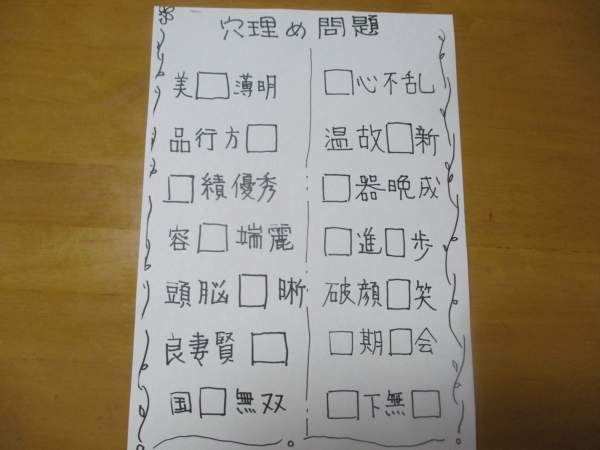 穴理め問題
美□薄明
品行方□
□績優秀
容□端麗
頭脳□晰
良妻賢□
国□無双
□心不乱
温故□新
□器晩成
□進□歩
破顔□笑
□期□会
□下無□